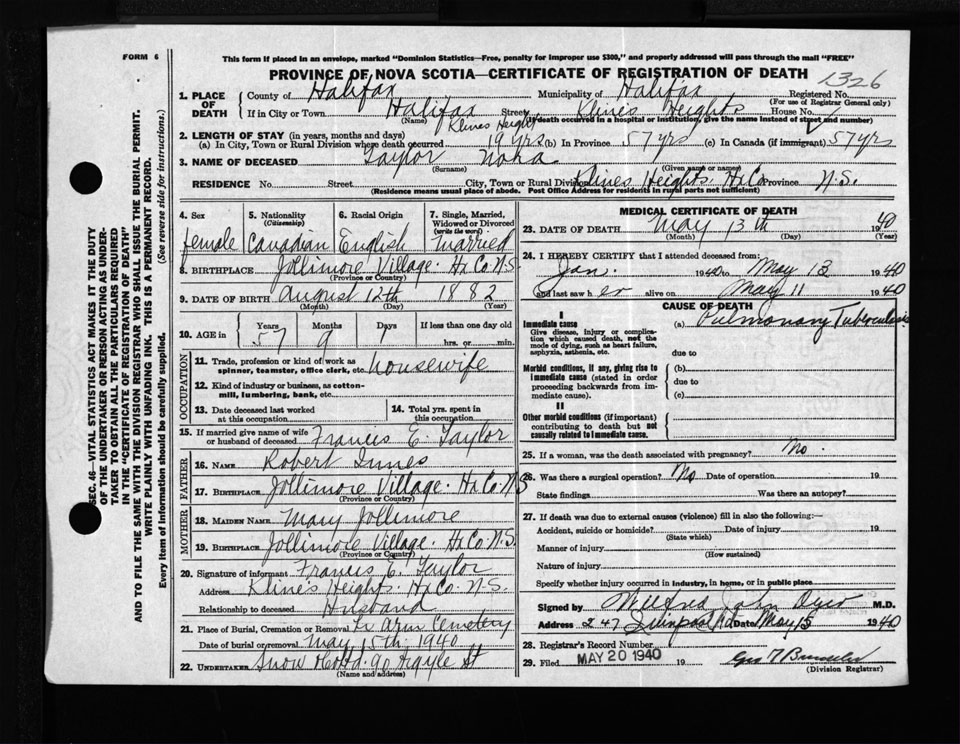 FORM 6
This form if placed in an envelope, marked "Dominion Statistics—Free, penalty for improper use $300," and properly addressed will pass through the mail "FREE"
PROVINCE OF NOVA SCOTIA—CERTIFICATE OF REGISTRATION OF DEATH
1326
1. PLACE OF DEATH
County of Halifax Municipality of Halifax Registered No.
(For use of Registrar General only)
If in City or Town Halifax Street Klines Heights House No.
(Name) (If death occurred in a hospital or institution, give the name instead of street and number)
2. LENGTH OF STAY (in years, months and days) Klines Heights
(a) In City, Town or Rural Division where death occurred 19 yrs (b) In Province 57 yrs (c) In Canada (if immigrant) 57 yrs
3. NAME OF DECEASED Taylor Nora
(Surname) (Given name or names)
RESIDENCE No. Street City, Town or Rural Division Klines Heights. Hx Co Province N.S.
(Residence means usual place of abode. Post Office Address for residents in rural parts not sufficient)
4. Sex female
5. Nationality (Citizenship) Canadian
6. Racial Origin English
7. Single, Married, Widowed or Divorced (write the word) Married
8. BIRTHPLACE Jollimore Village. Hx Co N.S.
(Province or Country)
9. DATE OF BIRTH August 12th 1882
(Month) (Day) (Year)
10. AGE in Years 57 Months 9 Days 1 If less than one day old hrs. or min.
OCCUPATION
11. Trade, profession or kind of work as spinner, teamster, office clerk, etc. Housewife
12. Kind of industry or business, as cotton-mill, lumbering, bank, etc.
13. Date deceased last worked at this occupation
14. Total yrs. spent in this occupation
15. If married give name of wife or husband of deceased Francis E. Taylor
FATHER
16. NAME Robert Innes
17. BIRTHPLACE Jollimore Village. Hx Co. N.S
(Province or Country)
MOTHER
18. MAIDEN NAME Mary Jollimore
19. BIRTHPLACE Jollimore Village. Hx Co. N.S.
(Province or Country)
20. Signature of informant Francis E. Taylor
Address Kline's Heights. Hx Co. N.S.
Relationship to deceased Husband
21. Place of Burial, Cremation or Removal Arm Cemetery
Date of burial or removal May 15th 1940
22. UNDERTAKER Snow 90 Argyle St
(Name and address)
MEDICAL CERTIFICATE OF DEATH
23. DATE OF DEATH May 13th 1940
(Month) (Day) (Year)
24. I HEREBY CERTIFY that I attended deceased from:
Jan. 1940 to May 13 1940
and last saw her alive on May 11 1940
CAUSE OF DEATH
I
Immediate cause
Give disease, injury or complication which caused death, not the mode of dying, such as heart failure, asphyxia, asthenia, etc.
(a) Pulmonary Tuberculosis
due to
Morbid conditions, if any, giving rise to immediate cause (stated in order proceeding backwards from immediate cause).
(b)
due to
(c)
II
Other morbid conditions (if important) contributing to death but not causally related to immediate cause.
25. If a woman, was the death associated with pregnancy? No.
26. Was there a surgical operation? No Date of operation 19
State findings Was there an autopsy?
27. If death was due to external causes (violence) fill in also the following:—
Accident, suicide or homicide? Date of injury 19
(State which)
Manner of injury
(How sustained)
Nature of injury
Specify whether injury occurred in industry, in home, or in public place
Signed by John Dyer M.D.
Address 247 Date May 15 1940
28. Registrar's Record Number
29. Filed MAY 20 1940 19
(Division Registrar)
SEC. 46—VITAL STATISTICS ACT MAKES IT THE DUTY
OF THE UNDERTAKER OR PERSON ACTING AS UNDER-
TAKER TO OBTAIN ALL THE PARTICULARS REQUIRED
IN THE "CERTIFICATE OF REGISTRATION OF DEATH"
AND TO FILE THE SAME WITH THE DIVISION REGISTRAR WHO SHALL ISSUE THE BURIAL PERMIT.
WRITE PLAINLY WITH UNFADING INK. THIS IS A PERMANENT RECORD.
Every item of information should be carefully supplied. (See reverse side for instructions.)